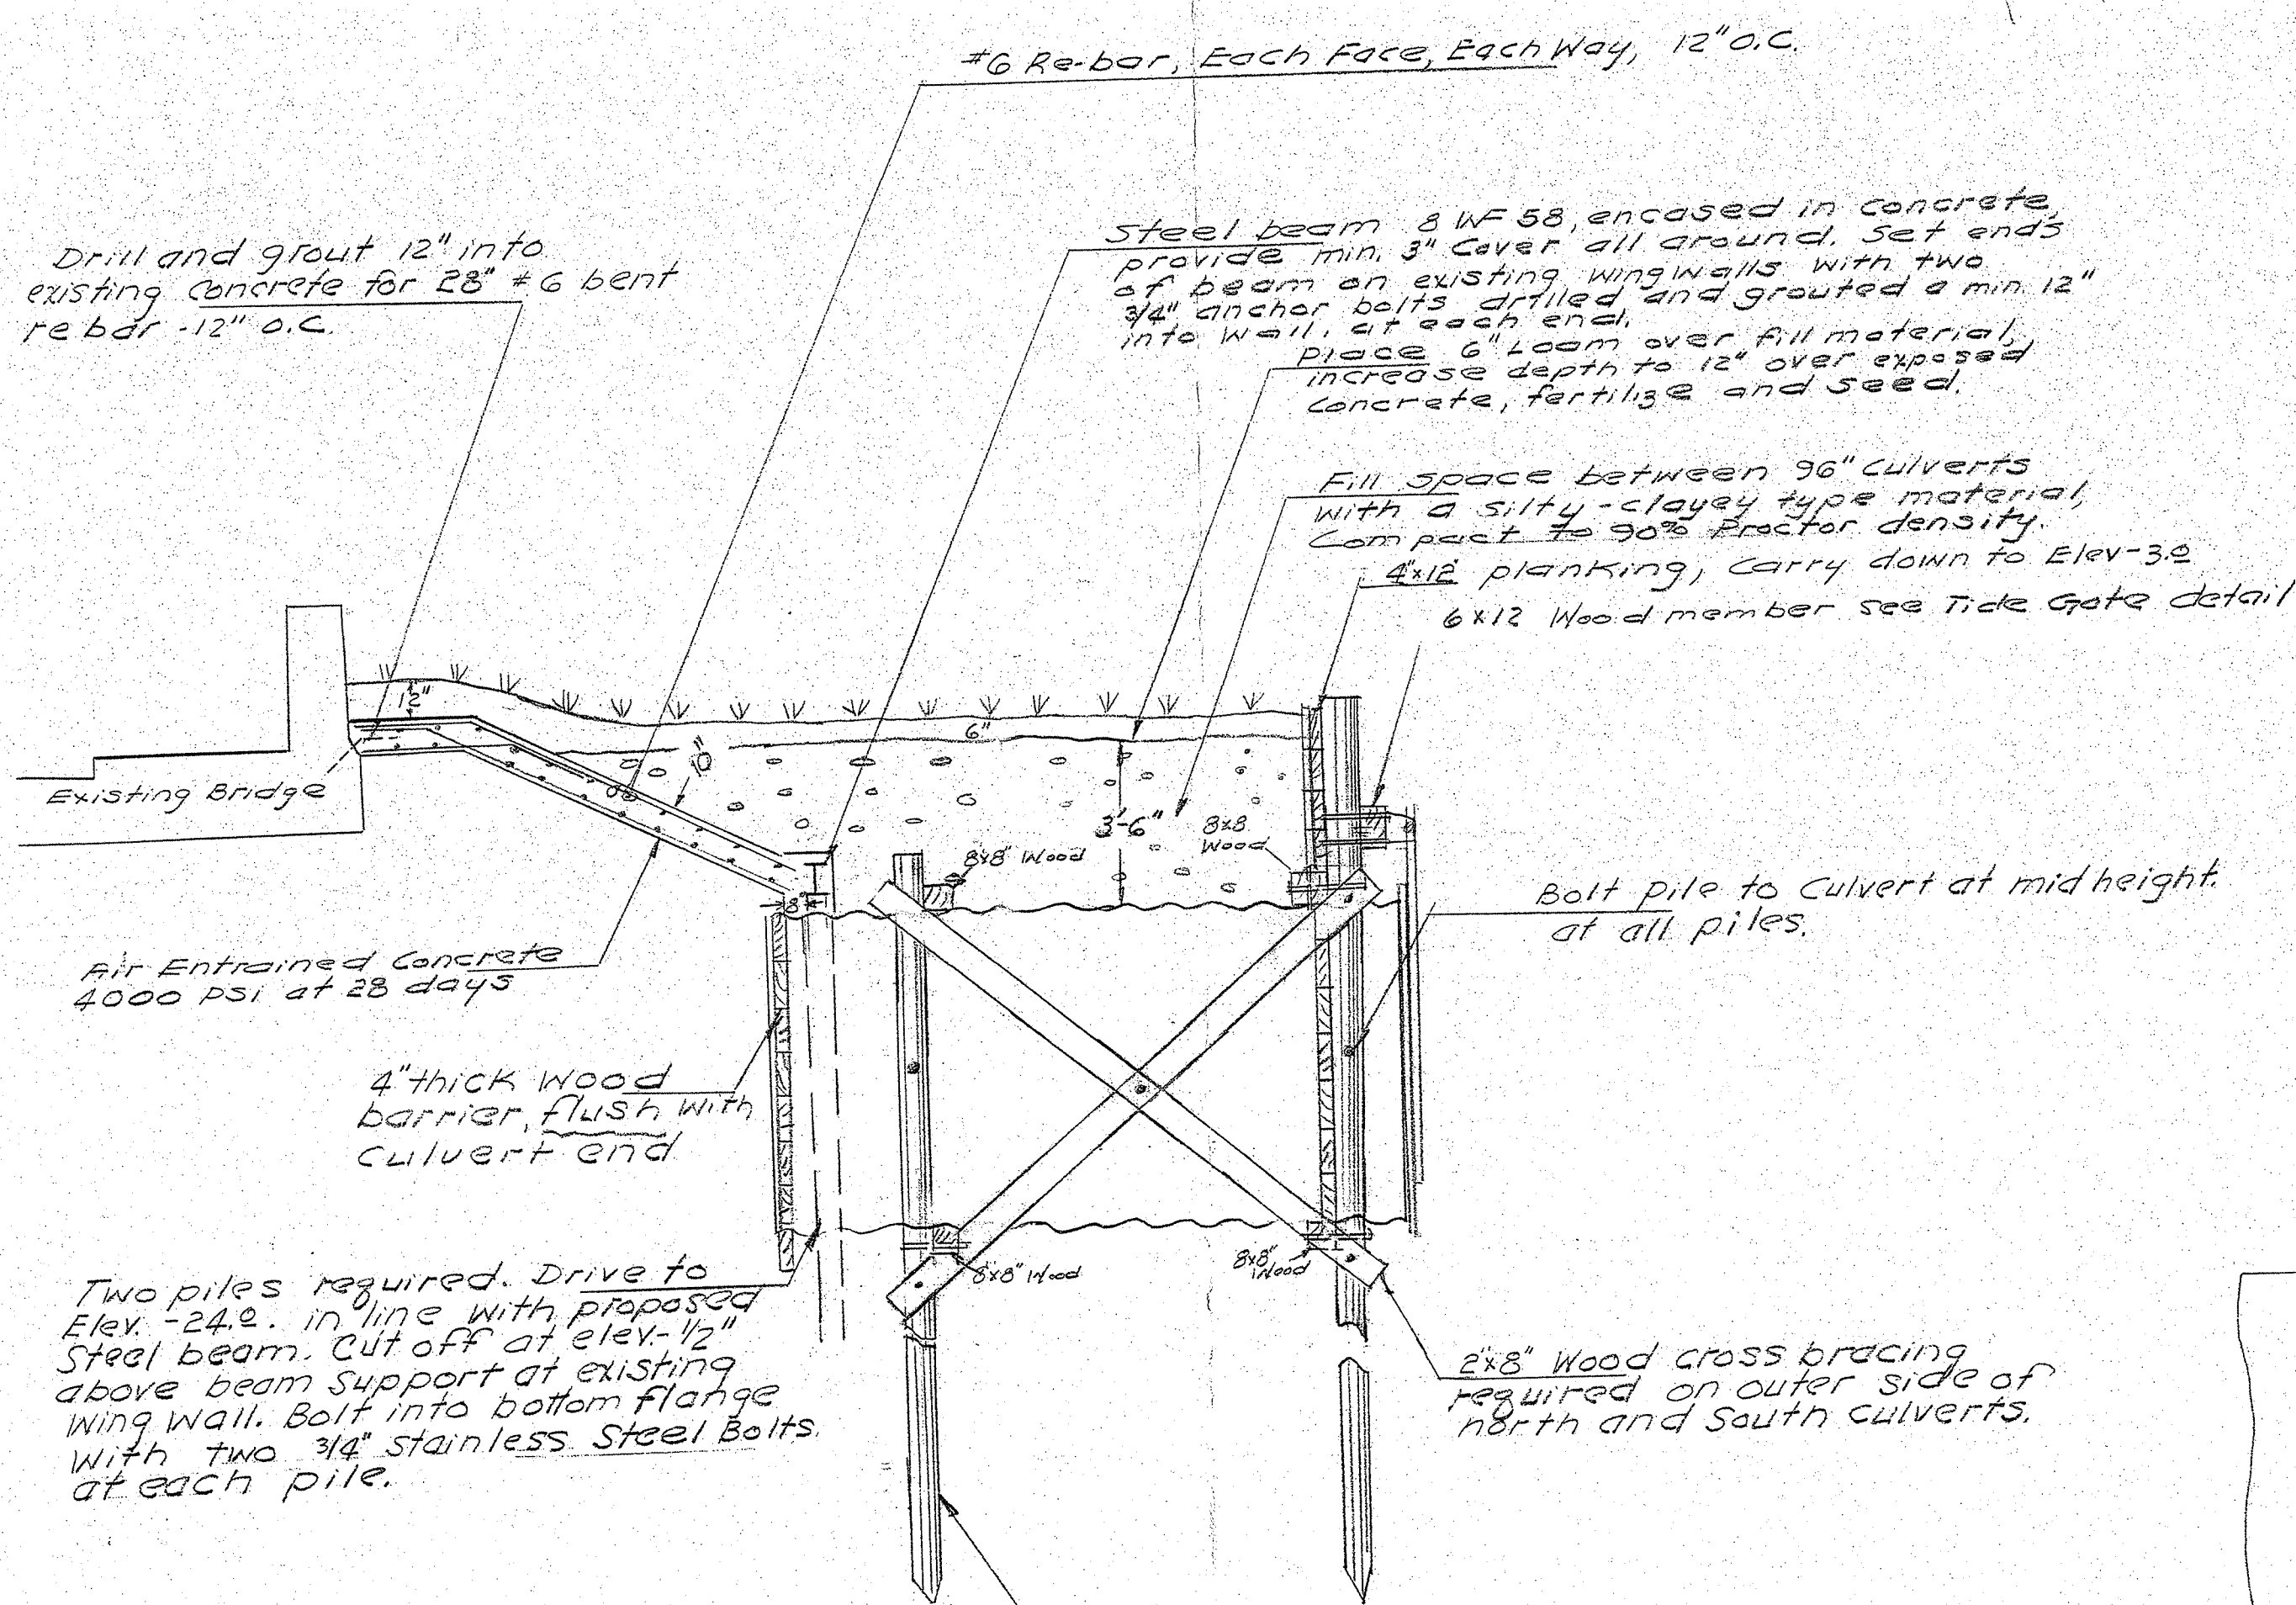 #6 Re-bar, Each Face, Each Way, 12" O.C.
Drill and grout 12" into
existing Concrete for 28" #6 bent
re bar -12" O.C.
Steel beam 8 WF 58, encased in concrete,
provide min. 3" Cover all around. Set ends
of beam on existing wingwalls with two
3/4" anchor bolts drilled and grouted a min. 12"
into wall, at each end.
Place 6" Loam over fill material,
increase depth to 12" over exposed
Concrete, fertilize and seed.
Fill space between 96" Culverts
with a silty-clayey type material,
Compact to 90% Proctor density.
4"x12" planking, Carry down to Elev -3.0
6x12 Wood member see Tide Gate detail
12"
6"
Existing Bridge
3'-6"
8x8
Wood
8x8" Wood
8"
Bolt pile to Culvert at mid height.
at all piles.
Air Entrained Concrete
4000 PSi at 28 days
4" thick Wood
barrier, flush with
Culvert end
8x8" Wood
8x8"
Wood
Two piles required. Drive to
Elev. -24.0. in line with proposed
Steel beam. Cut off at elev.- 1/2"
above beam Support at existing
Wing Wall. Bolt into bottom flange
With two 3/4" Stainless Steel Bolts.
at each pile.
2"x8" Wood cross bracing
required on outer side of
north and South Culverts.